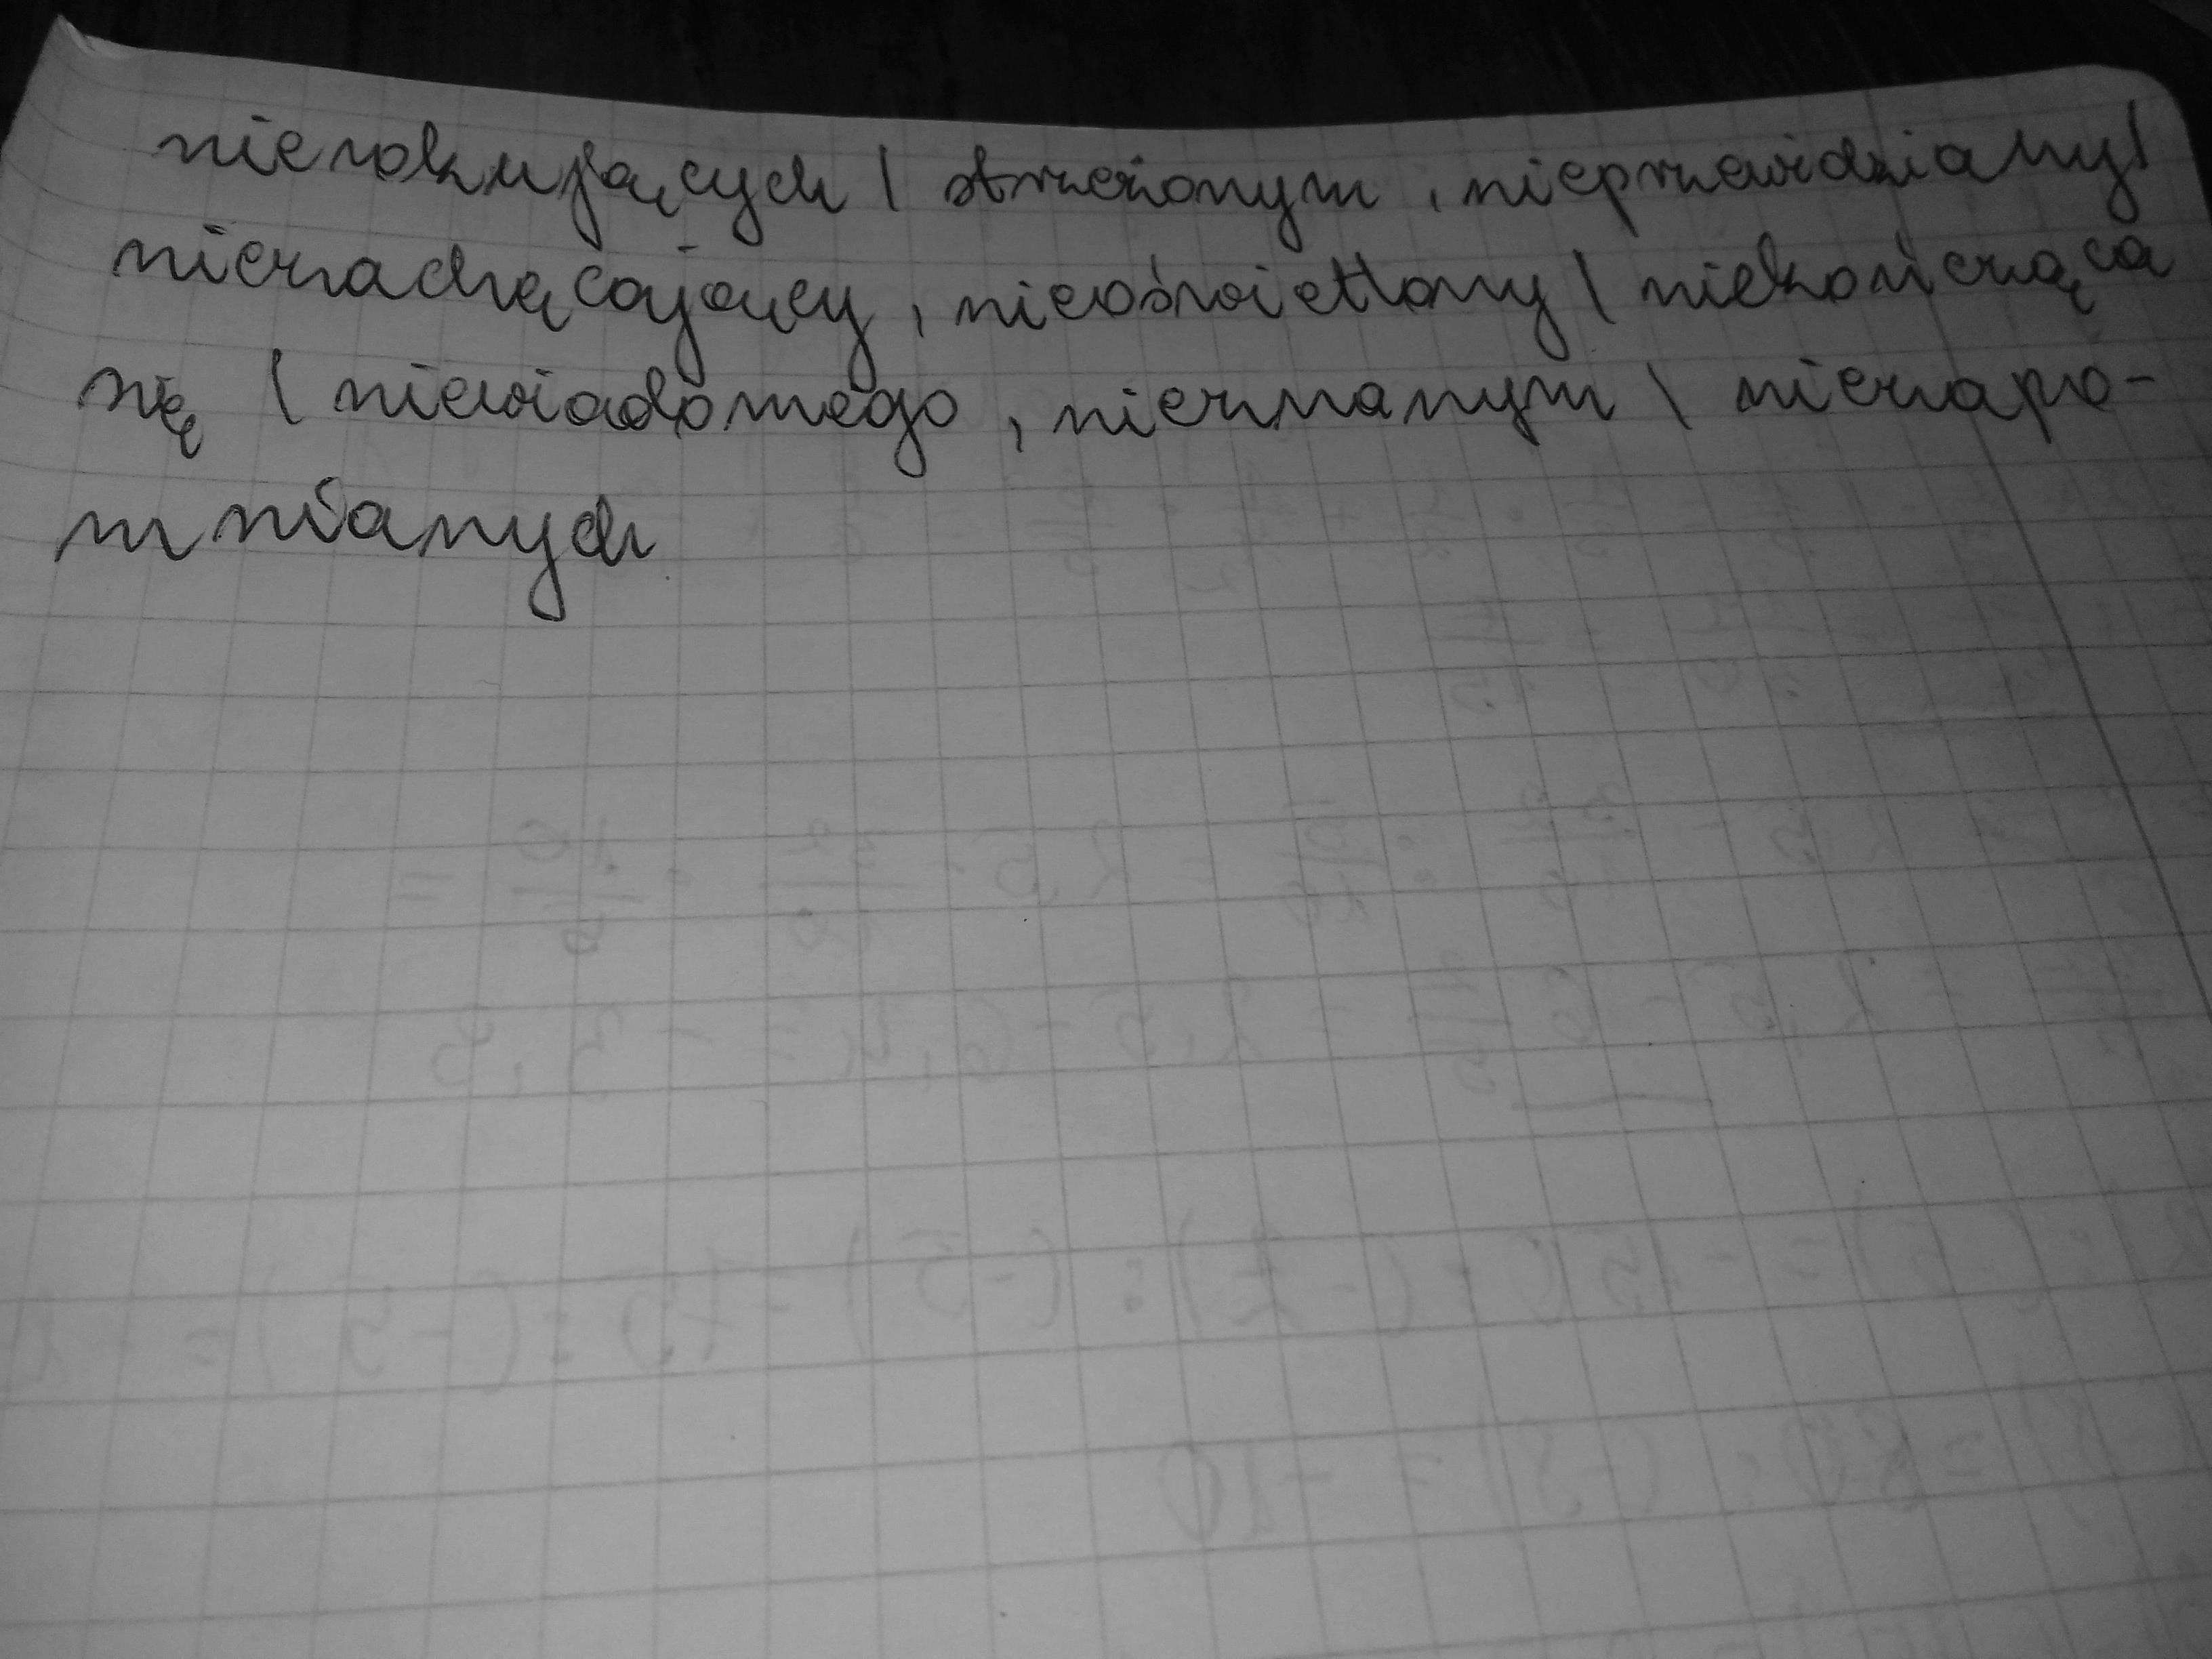 nierokujących | strzeżonym, nieprzewidziany |
niezachęcający, nieoświetlony | niekończąca
się | niewiadomego, nieznanym | niezapo-
mnianych